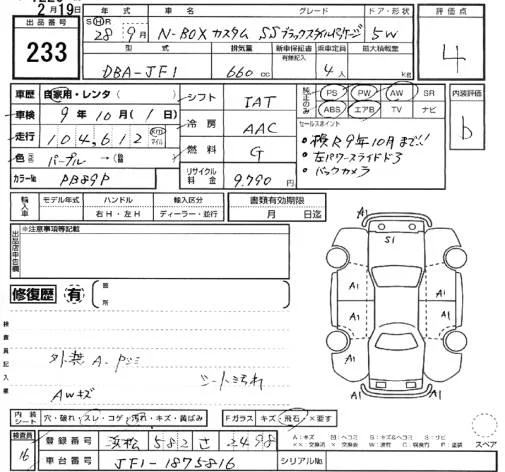 2月19日
出品番号
233
年式 車名 グレード ドア・形状
SHR 28年 9月 N-BOX カスタム SSブラックスタイルパッケージ 5W
型式 排気量 新車保証書 有無記入 乗車定員 最大積載量
DBA-JF1 660cc 4人 kg
評価点
4
内装評価
b
車歴 自家用・レンタ( )
車検 9年10月(1日)
走行 104,612 km マイル
色 パープル→
カラーNo PB89P
シフト IAT
冷房 AAC
燃料 G
リサイクル料金 9,790円
純正のみ PS PW AW SR
ABS エアB TV ナビ
セールスポイント
・検R9年10月まで!!
・左パワースライドドア
・バックカメラ
輸入車 モデル年式 ハンドル 右H・左H 輸入区分 ディーラー・並行
書類有効期限 月 日迄
出品店申告欄
※注意事項等記載
修復歴 有 箇所
検査員記入欄
外装 A・Pシミ
AWキズ
シート汚れ
S1
A1 A1
A1 A1
A1 A1
内装シート 穴・破れ・スレ・コゲ・汚れ・キズ・黄ばみ
Fガラス キズ・飛石・×要す
検査員 16
登録番号 浜松 582 さ 2498
車台番号 JF1-1875816
シリアルNo.
A:キズ U:ヘコミ B:キズ&ヘコミ S:サビ
××:交換済 ×:要交換 W:波打 C:腐食 P:塗装
スペア